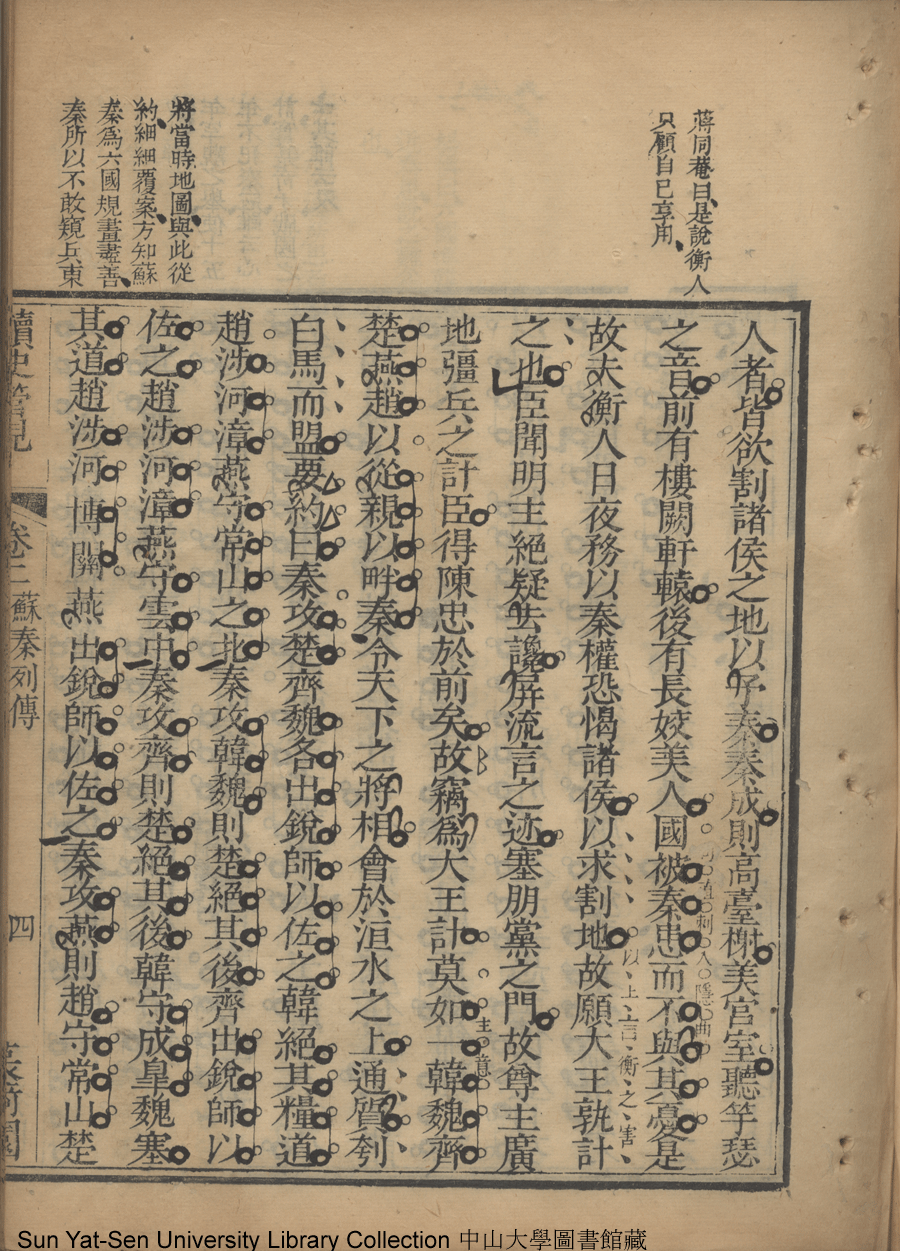 蔣同菴曰是說衡人
只顧自己享用
將當時地圖與此從
約細細覆案方知蘇
秦爲六國規畫盡善
秦所以不敢窺兵東
人者皆欲割諸侯之地以予秦秦成則高臺榭美宮室聽竽瑟
之音前有樓闕軒轅後有長姣美人國被秦患而不與其憂是
刺人隱曲
故夫衡人日夜務以秦權恐愒諸侯以求割地故願大王孰計
以上言衡之害
之也臣聞明主絕疑去讒屏流言之迹塞朋黨之門故尊主廣
地彊兵之計臣得陳忠於前矣故竊爲大王計莫如一韓魏齊
主意
楚燕趙以從親以畔秦令天下之將相會於洹水之上通質刳
白馬而盟要約曰秦攻楚齊魏各出銳師以佐之韓絕其糧道
趙涉河漳燕守常山之北秦攻韓魏則楚絕其後齊出銳師以
佐之趙涉河漳燕守雲中秦攻齊則楚絕其後韓守成臯魏塞
其道趙涉河博關燕出銳師以佐之秦攻燕則趙守常山楚
讀史管見
卷二蘇秦列傳
四
Sun Yat-Sen University Library Collection 中山大學圖書館藏